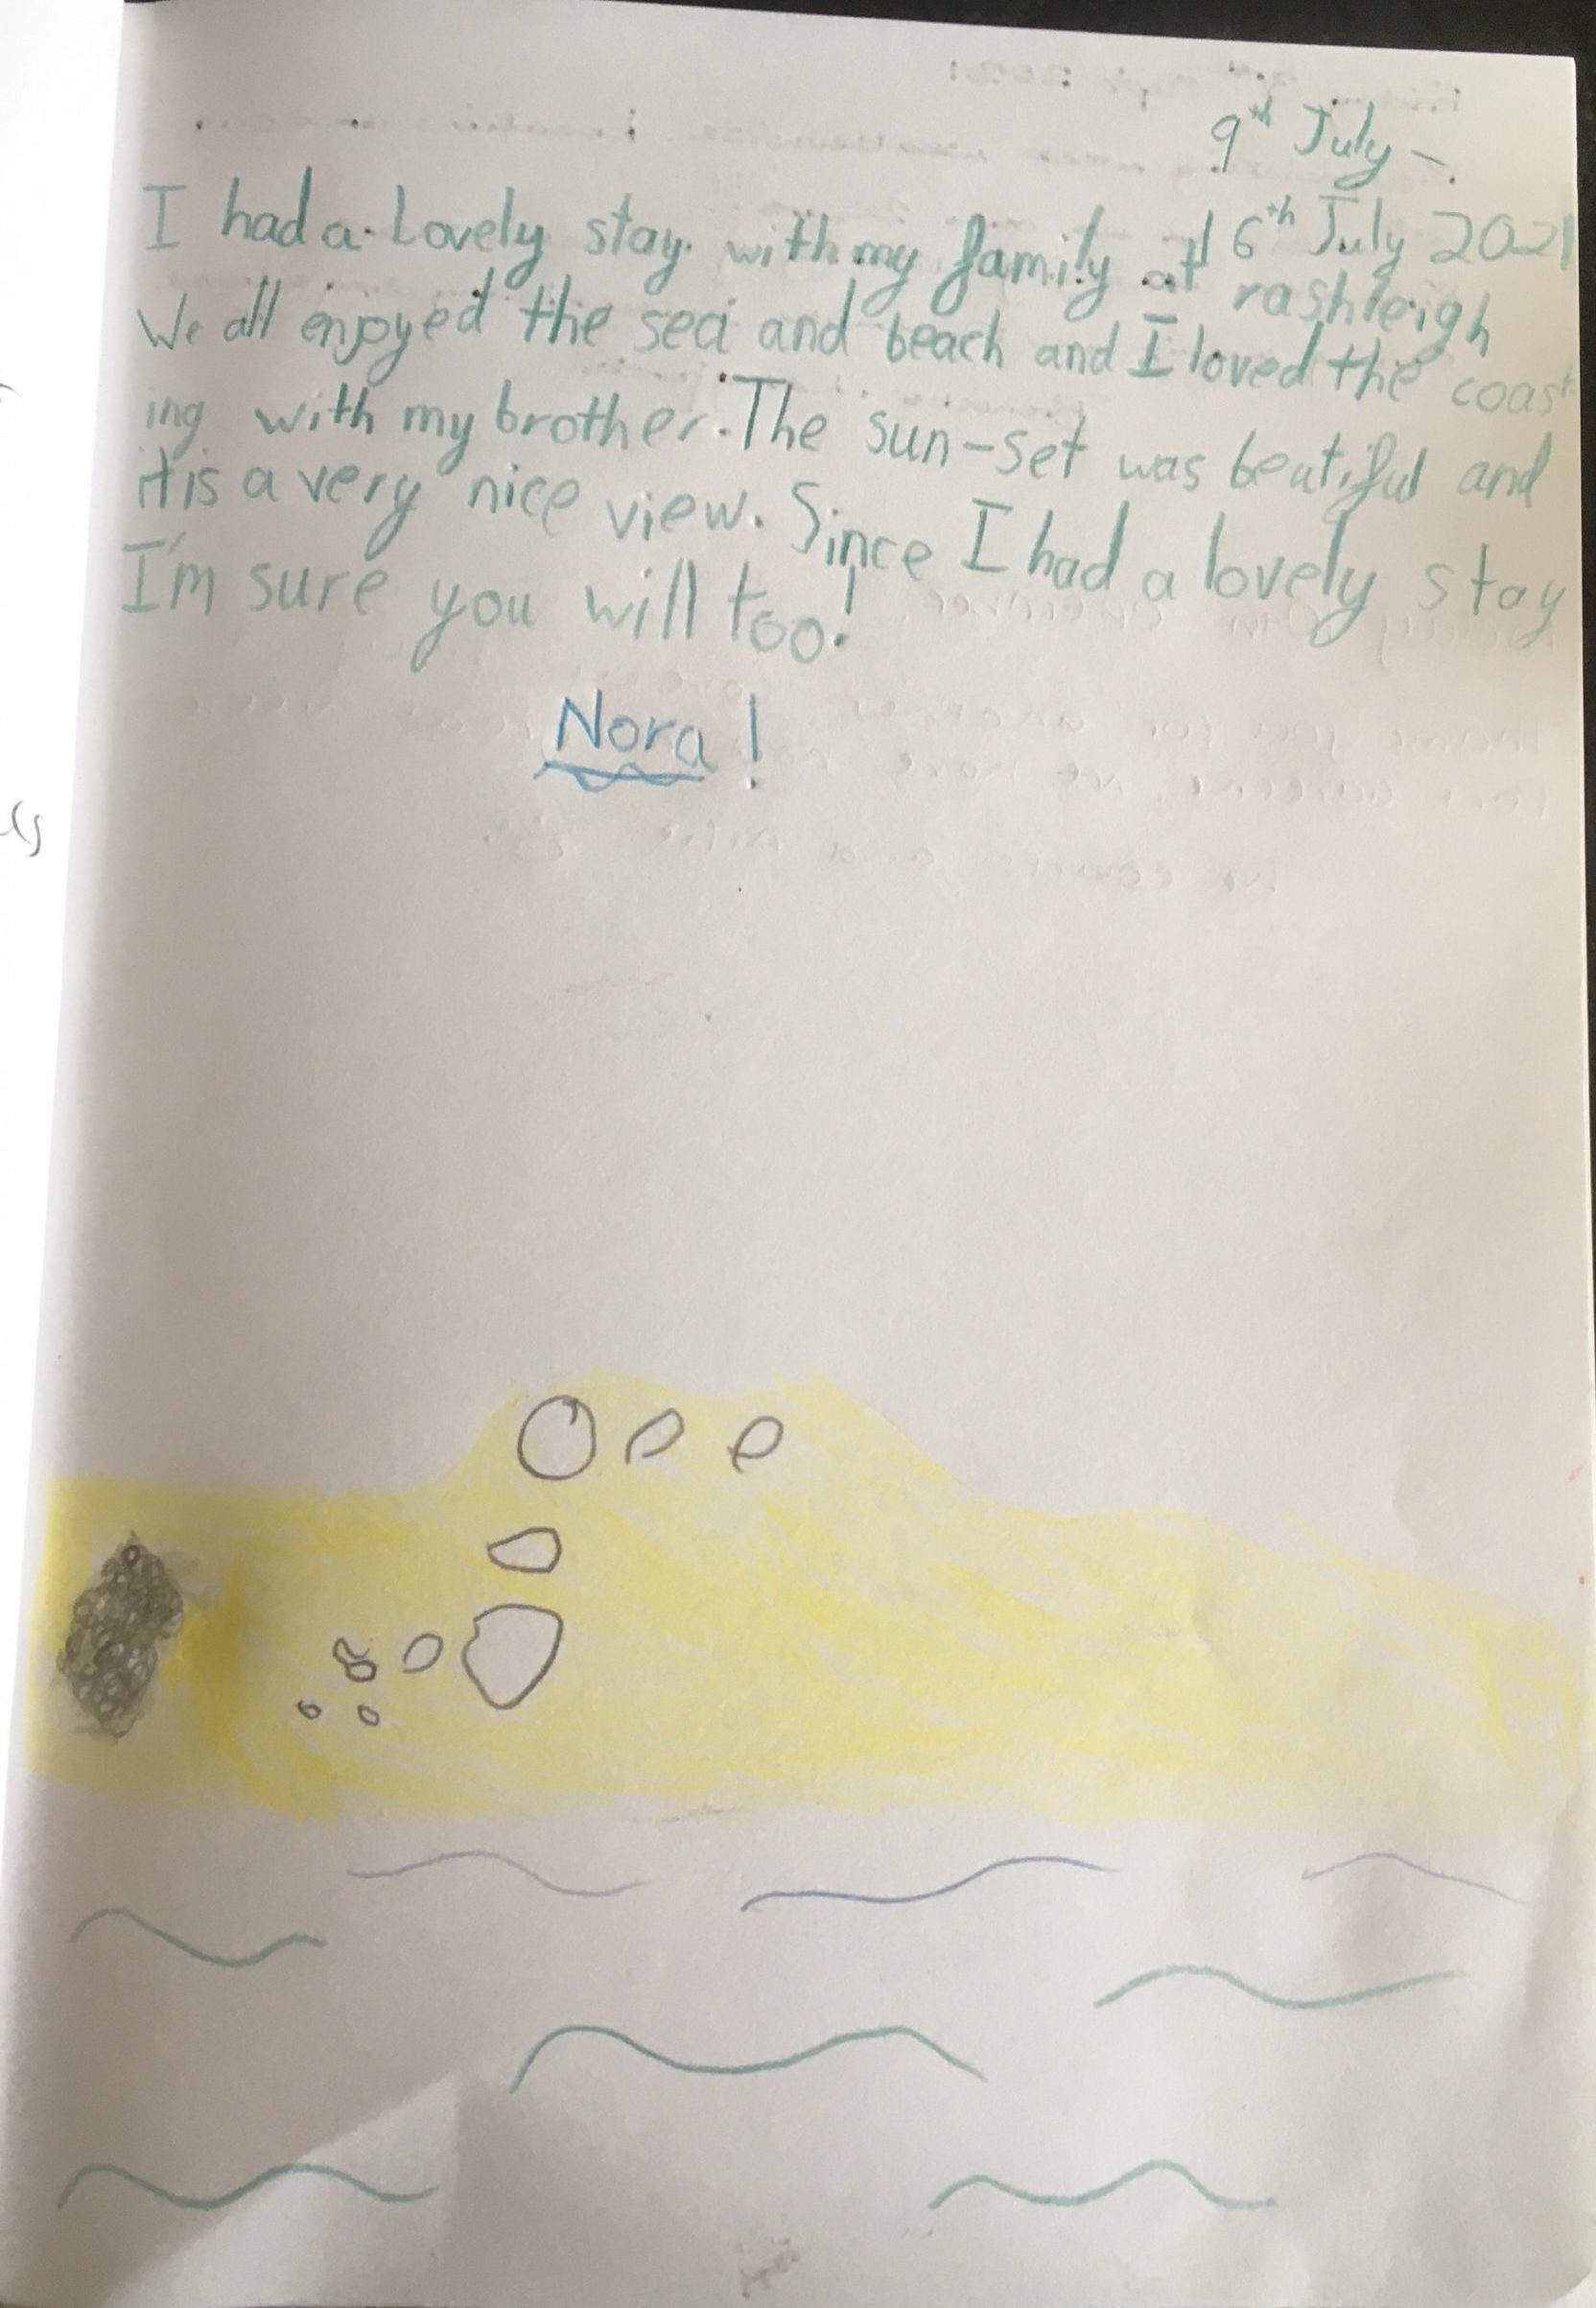 9th July -
16th July 2021
I had a Lovely stay with my family at rashleigh
We all enjoyed the sea and beach and I loved the coast
ing with my brother. The sun-set was beatiful and
it is a very nice view. Since I had a lovely stay
I'm sure you will too!
Nora!